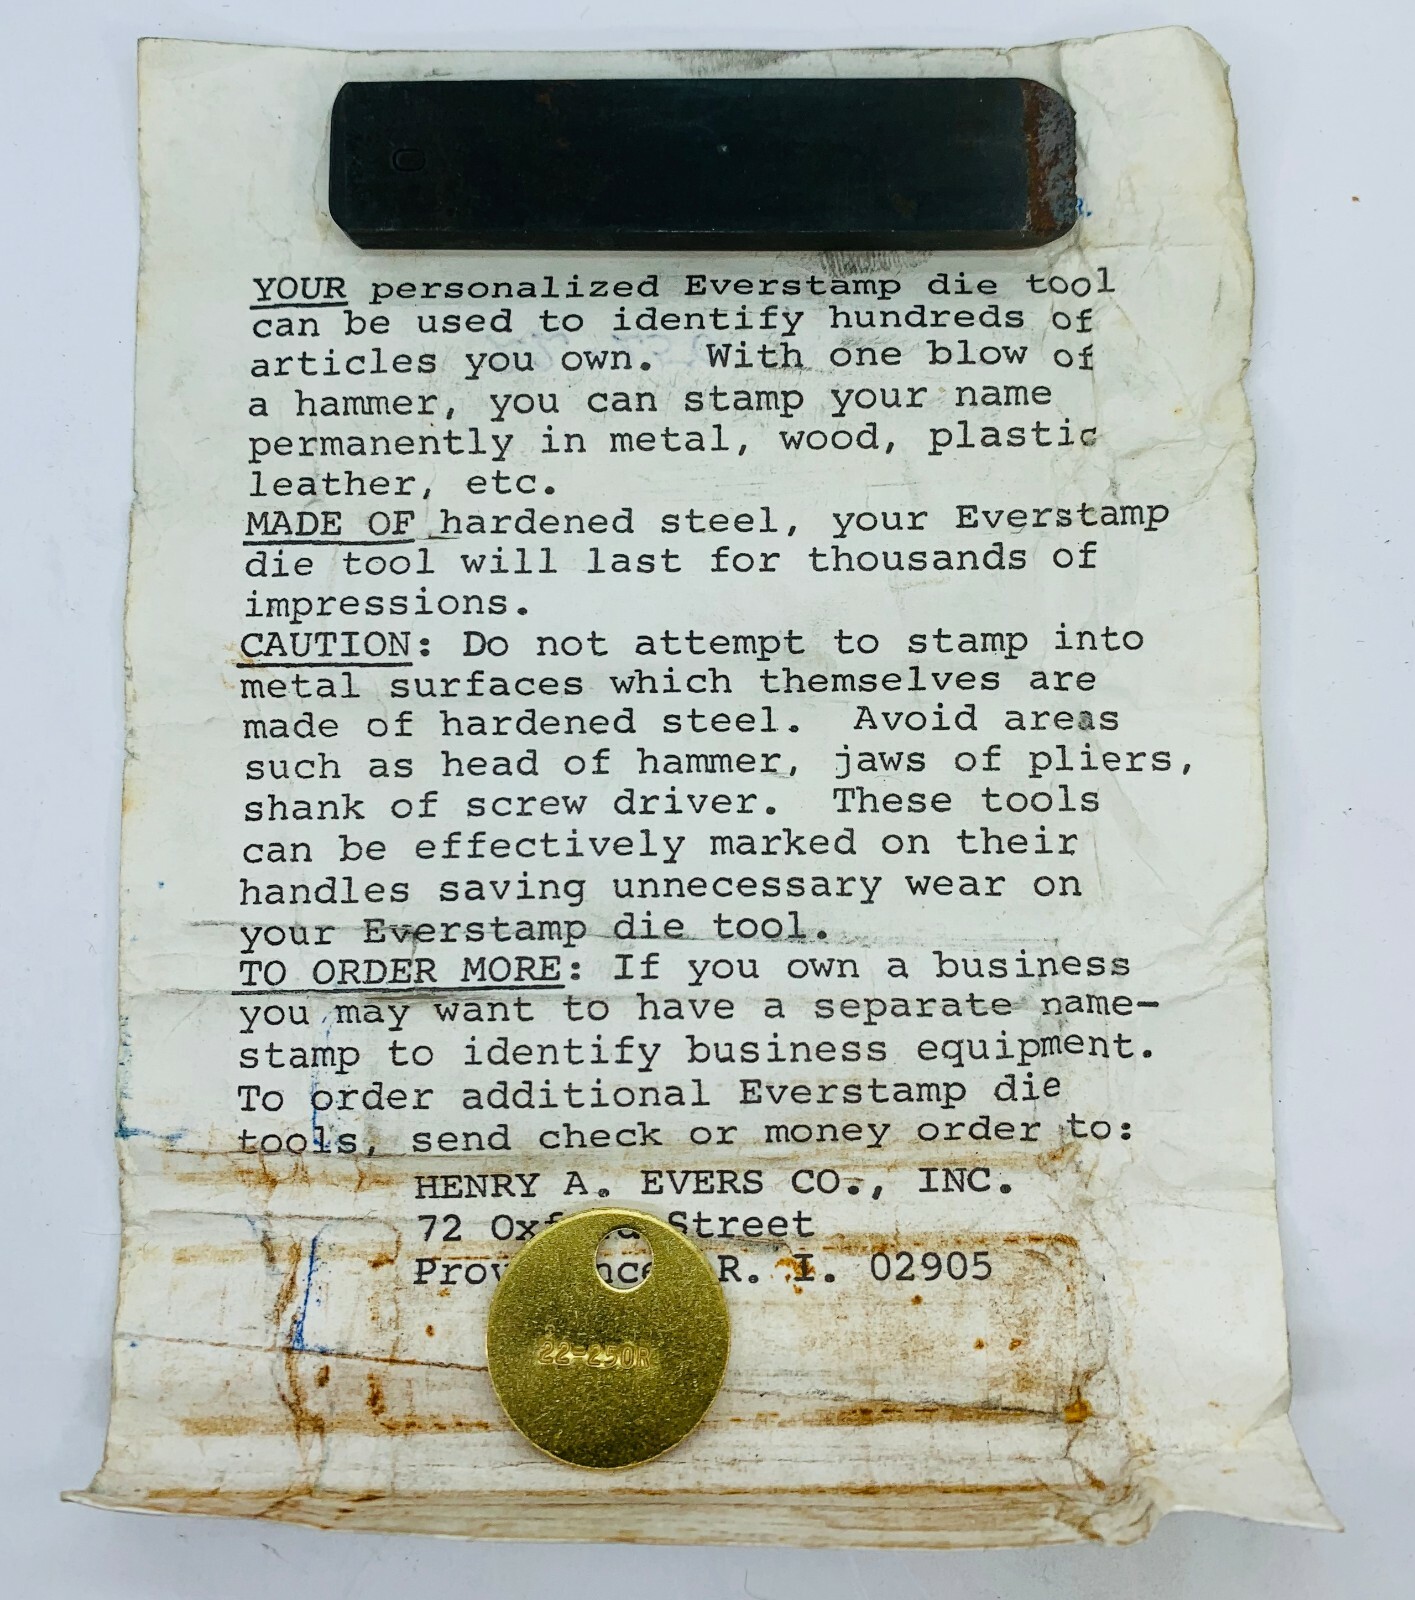 YOUR personalized Everstamp die tool
can be used to identify hundreds of
articles you own. With one blow of
a hammer, you can stamp your name
permanently in metal, wood, plastic
leather, etc.
MADE OF hardened steel, your Everstamp
die tool will last for thousands of
impressions.
CAUTION: Do not attempt to stamp into
metal surfaces which themselves are
made of hardened steel. Avoid areas
such as head of hammer, jaws of pliers,
shank of screw driver. These tools
can be effectively marked on their
handles saving unnecessary wear on
your Everstamp die tool.
TO ORDER MORE: If you own a business
you may want to have a separate name-
stamp to identify business equipment.
To order additional Everstamp die
tools, send check or money order to:
HENRY A. EVERS CO., INC.
72 Street
R. I. 02905
22-250R